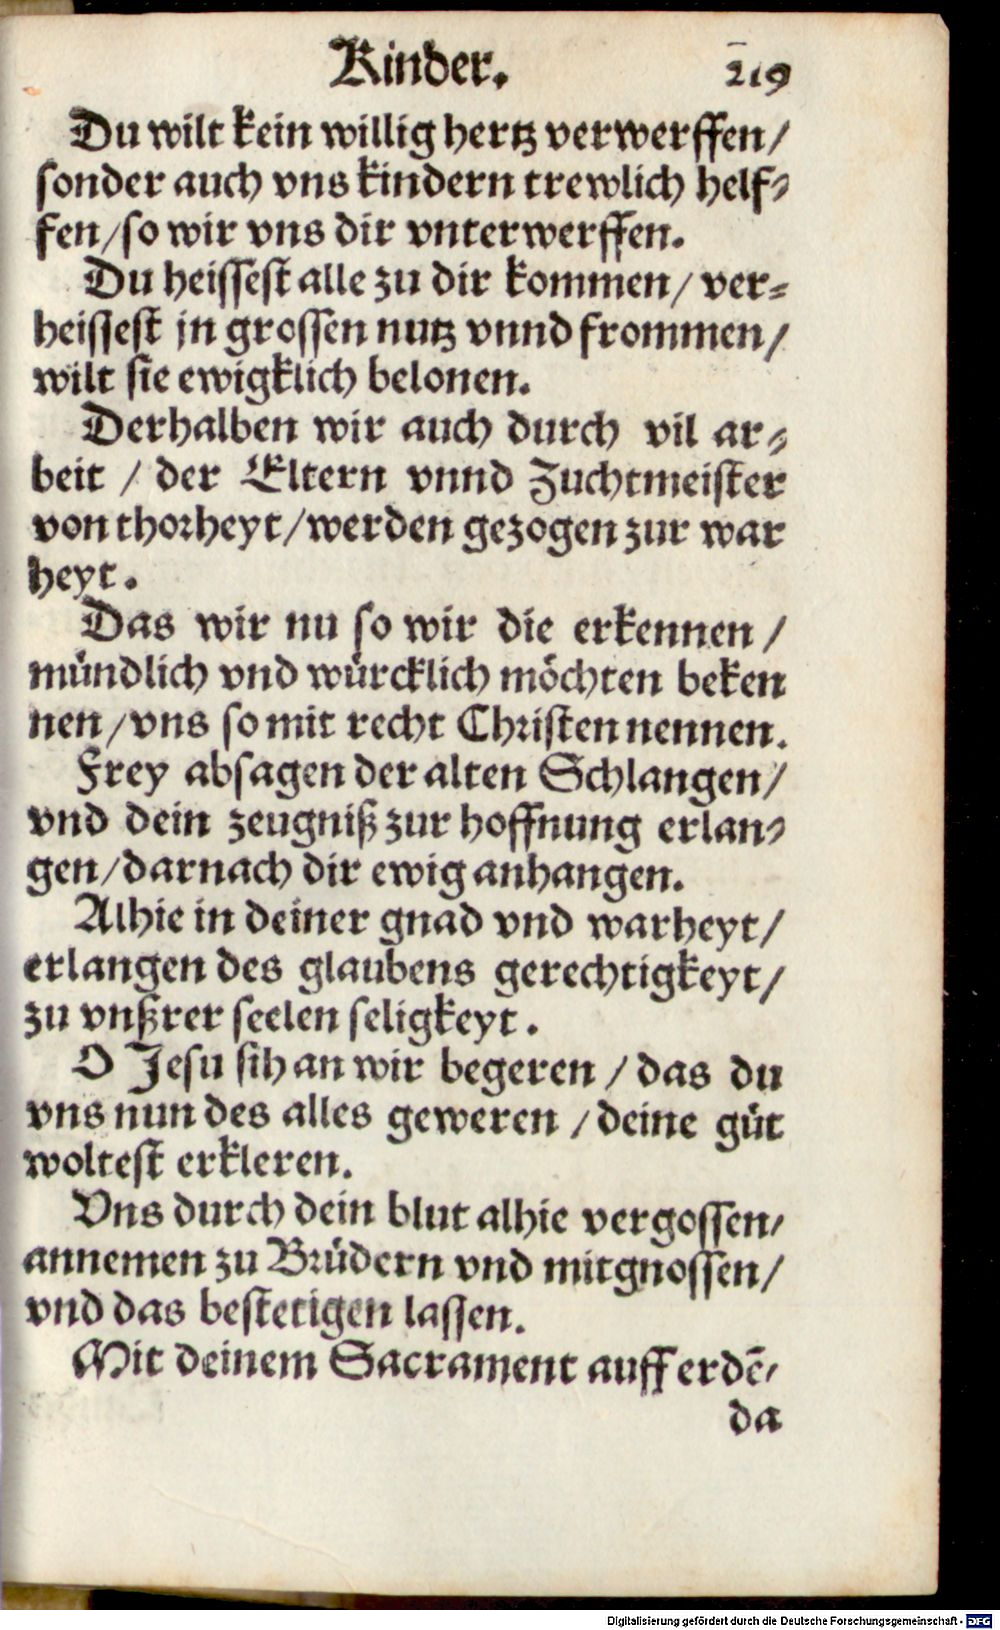 Kinder. 219
Du wilt kein willig hertz verwerffen/
sonder auch vns kindern trewlich helf-
fen/so wir vns dir vnterwerffen.
Du heissest alle zu dir kommen/ ver-
heissest jn grossen nutz vnnd frommen/
wilt sie ewigklich belonen.
Derhalben wir auch durch vil ar-
beit / der Eltern vnnd Zuchtmeister
von thorheyt/werden gezogen zur war
heyt.
Das wir nu so wir die erkennen /
mündlich vnd würcklich möchten beken
nen/vns so mit recht Christen nennen.
Frey absagen der alten Schlangen/
vnd dein zeugniß zur hoffnung erlan-
gen/darnach dir ewig anhangen.
Alhie in deiner gnad vnd warheyt/
erlangen des glaubens gerechtigkeyt/
zu vnßrer seelen seligkeyt.
O Jesu sih an wir begeren / das du
vns nun des alles geweren /deine güt
woltest erkleren.
Vns durch dein blut alhie vergossen/
annemen zu Brüdern vnd mitgnossen/
vnd das bestetigen lassen.
Mit deinem Sacrament auff erdē/
da
Digitalisierung gefördert durch die Deutsche Forschungsgemeinschaft - DFG